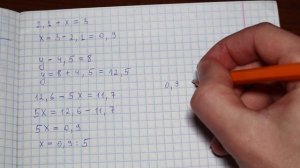 2,1 + x = 3
x = 3 - 2,1 = 0,9
y - 4,5 = 8
y = 8 + 4,5 = 12,5
12,6 - 5x = 11,7
5x = 12,6 - 11,7
5x = 0,9
x = 0,9 : 5
0,9